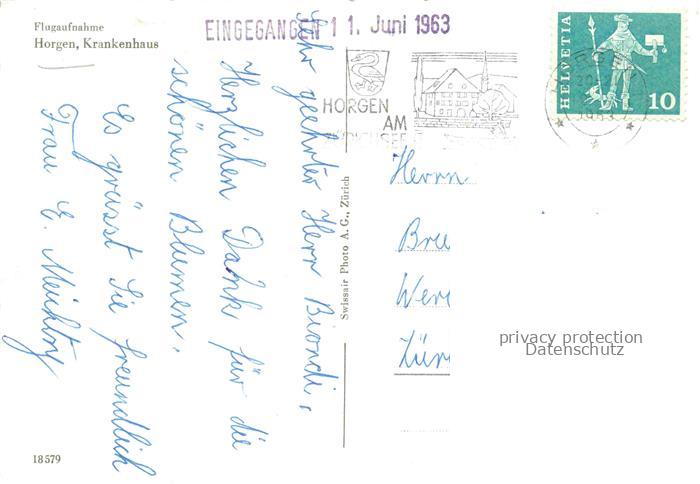 Flugaufnahme
Horgen, Krankenhaus
EINGEGANGEN 11. Juni 1963
HORGEN
AM
ZÜRICHSEE
HELVETIA
10
Sehr geehrter Herr Biondi,
Herzlichen Dank für die
schönen Blumen.
Es grüsst Sie freundlich
Frau E.
Swissair Photo A. G., Zürich
Herrn
Bru
Wer
Zür
privacy protection
Datenschutz
18579